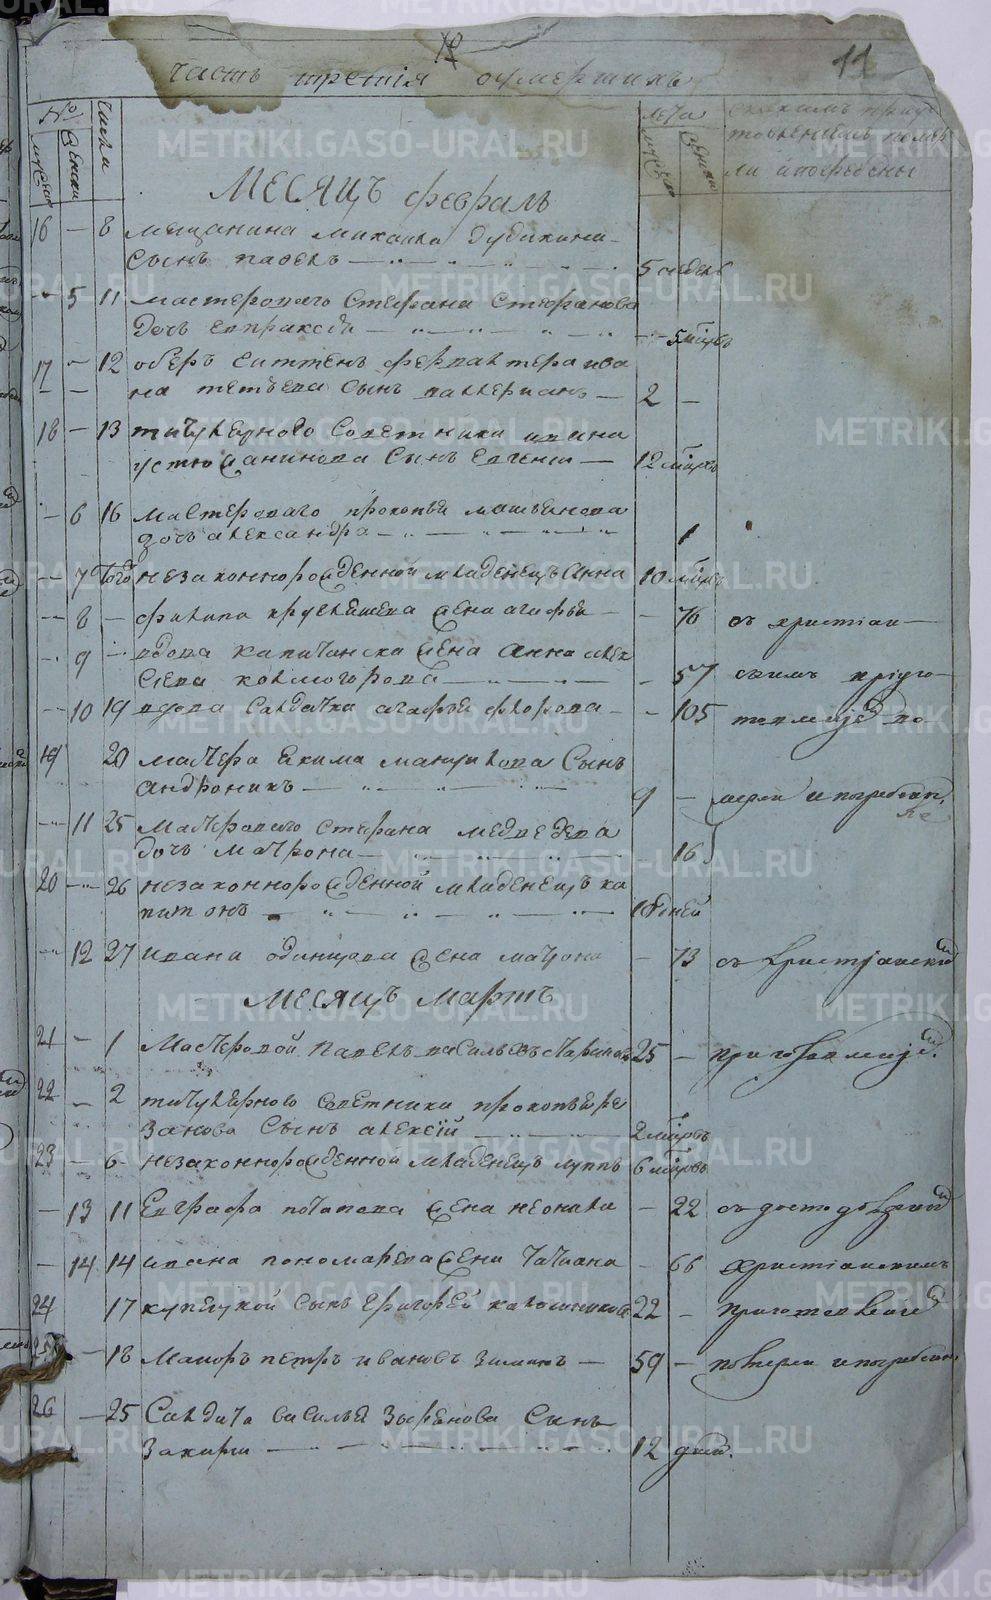 11
часть третія оумершихъ
№ Числа лета
мужес женск мужес женски
ли и погребены
Месяцъ февраль
16 — 8 мещанина михаила дудикина
сынъ павелъ — 5 недель
5 11 мастероваго Стефана Стефанова
дочь евпраксея — 5 мцовъ
17 — 12 оберъ
сынъ валериянъ — 2 —
18 — 13 титулярного советника ивана
устюжанинова Сынъ евгений — 12 мцовъ
— 6 16 мастероваго прокопья
дочь александра — 1
— 7 того незаконнорожденной младенецъ Анна 10 мцовъ
— 8 — филипа хрулышева жена агафья — 76 съ христиан
— 9 — вдова капитанска жена Анна алек
сеева колмогорова — 57 скимъ пріуго
— 10 19 вдова Салдатка агафья флорова — 105
19 20 мастера екима манциѣова Сынъ
андроникъ — 9 — мерли и погребены
11 25 мастероваго Стефана медведева
дочь матрона — 16
20 — 26 незаконнорожденной младенецъ ка
питонъ — 18 дней
12 27 ивана одинцова жена матрона — 73 съ христіанским
Месяцъ мартъ
21 — 1 Мастеровой павелъ васильевъ Ларионовъ 25 —
22 — 2 титулярного советника прокопья ре
занова Сынъ алексій — 2 мцовъ
23 — 6 незаконнорожденной младенецъ луппъ 6 мцовъ
— 13 11 Евграфа потапова жена неонила — 22
— 14 14 ивана пономарева жена татиана — 66 христіанскимъ
24 17 купецкой сынъ григорей калашников 22 —
25 — 18 Маиоръ петръ ивановъ зиминъ — 59 — померли и погребены
26 — 25 Салдата василья зырянова Сынъ
захарии — 12 дней.
METRIKI.GASO-URAL.RU